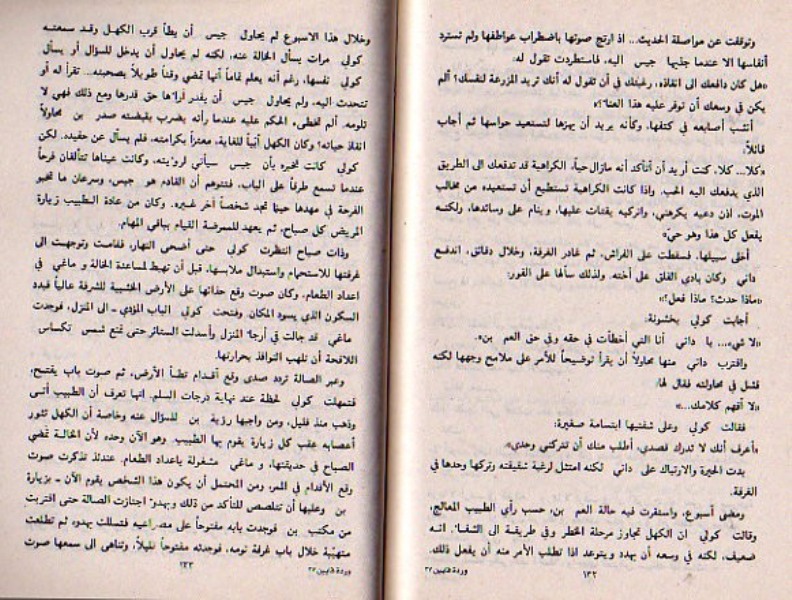 وتوقفت عن مواصلة الحديث... اذ ارتج صوتها باضطراب عواطفها ولم تسترد
أنفاسها الا عندما جذبها جيس اليه، فاستطردت تقول له:
«هل كان دافعك الى انقاذه، رغبتك في أن تقول له أنك تريد المزرعة لنفسك؟ ألم
يكن في وسعك أن توفر عليه هذا العناء؟»
أنشب أصابعه في كتفها، وكأنه يريد أن يهزها لتستعيد حواسها ثم أجاب
قائلاً:
«كلا... كلا، كنت أريد أن أتأكد أنه مازال حياً، الكراهية قد تدفعك الى الطريق
الذي يدفعك اليه الحب. واذا كانت الكراهية تستطيع أن تستعيده من مخالب
الموت، اذن دعيه يكرهني، واتركيه يقتات عليها، وينام على وسائدها، ولكنه
يفعل كل هذا وهو حي.»
أخلى سبيلها، فسقطت على الفراش، ثم غادر الغرفة، وخلال دقائق، اندفع
داني وكان بادي القلق على أخته. ولذلك سألها على الفور:
«ماذا حدث؟ ماذا فعل؟»
أجابت كولي بخشونة:
«لا شيء... يا داني أنا التي أخطأت في حقه وفي حق العم بن.»
واقترب داني منها محاولاً أن يقرأ توضيحاً للأمر على ملامح وجهها لكنه
فشل في محاولته فقال لها:
«لا أفهم كلامك...»
فقالت كولي وعلى شفتيها ابتسامة صغيرة:
«أعرف أنك لا تدرك قصدي، أطلب منك أن تتركني وحدي».
بدت الحيرة والارتباك على داني لكنه امتثل لرغبة شقيقته وتركها وحدها في
الغرفة.
ومضى أسبوع، واستقرت فيه حالة العم بن، حسب رأي الطبيب المعالج،
وقالت كولي ان الكهل تجاوز مرحلة الخطر وفي طريقه الى الشفاء. انه
ضعيف، لكنه في وسعه أن يهدد ويتوعد اذا تطلب الأمر منه أن يفعل ذلك.
١٣٢
وردة قايين ٢٧
وخلال هذا الاسبوع لم يحاول جيس أن يطأ قرب الكهل وقد سمعته
كولي مرات يسأل الخالة عنه، لكنه لم يحاول أن يدخل للسؤال أو يسأل
كولي نفسها، رغم أنه يعلم تماماً أنها تمضي وقتاً طويلاً بصحبته... تقرأ له أو
تتحدث اليه، ولم يحاول جيس أن يقدر قراءها حق قدرها ومع ذلك فهي لا
تلومه. ألم تخطىء الحكم عليه عندما رأته يضرب بقبضته صدر بن محاولاً
انقاذ حياته؟ وكان الكهل أبياً للغاية، معتزاً بكرامته، فلم يسأل عن حفيده. لكن
كولي كانت تخبره بأن جيس سيأتي لرؤيته، وكانت عيناها تتألقان فرحاً
عندما تسمع طرقاً على الباب، فتتوهم أن القادم هو جيس، وسرعان ما تخبو
الفرحة في مهدها حينما تجد شخصاً آخر غيره. وكان من عادة الطبيب زيارة
المريض كل صباح، ثم يعهد للممرضة القيام بباقي المهام.
وذات صباح انتظرت كولي حتى أضحى النهار، فقامت وتوجهت الى
غرفتها للاستحمام واستبدال ملابسها، قبل أن تهبط لمساعدة الخالة و ماغي في
اعداد الطعام. وكان صوت وقع حذائها على الأرض الخشبية للشرفة عالياً فبدد
السكون الذي يسود المكان. وفتحت كولي الباب المؤدي الى المنزل، فوجدت
ماغي قد جالت في أرجاء المنزل وأسدلت الستائر حتى تمنع شمس تكساس
اللافحة أن تلهب النوافذ بحرارتها.
وعبر الصالة تردد صدى وقع أقدام تطأ الأرض، ثم صوت باب يفتح،
فتمهلت كولي لحظة عند نهاية درجات السلم. انها تعرف أن الطبيب أتى
وذهب منذ قليل، ومن واجبها رؤية بن للسؤال عنه وخاصة أن الكهل تثور
أعصابه عقب كل زيارة يقوم بها الطبيب. وهو الآن وحده لأن الخالة تمضي
الصباح في حديقتها، و ماغي مشغولة باعداد الطعام. عندئذ تذكرت صوت
وقع الأقدام في الممر، ومن المحتمل أن يكون هذا الشخص يقوم الآن بزيارة
بن وعليها أن تتلصص للتأكد من ذلك وبهدوء اجتازت الصالة حتى اقتربت
من مكتب بن فوجدت بابه مفتوحاً على مصراعيه فتسللت بهدوء ثم تطلعت
متهيبة خلال باب غرفة نومه، فوجدته مفتوحاً قليلاً، وتناهى الى سمعها صوت
١٣٣
وردة قايين ٢٧